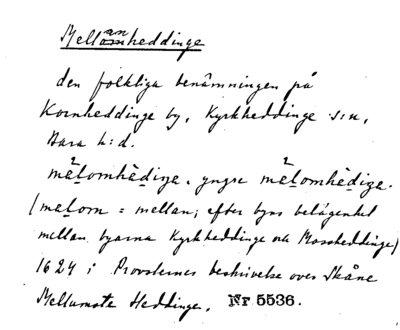 Mellanheddinge
den folkliga benämningen på
Kornheddinge by, Kyrkheddinge s:n,
Bara h:d.
mēḷomhèdiŋa, yngre mēḷomhèdiŋe.
(meḷom = mellan; efter byns belägenhet
mellan byarna Kyrkheddinge och Mossheddinge)
1624 i Provsternes beskrivelse over Skåne
Mellumste Heddinge. Nr 5536.